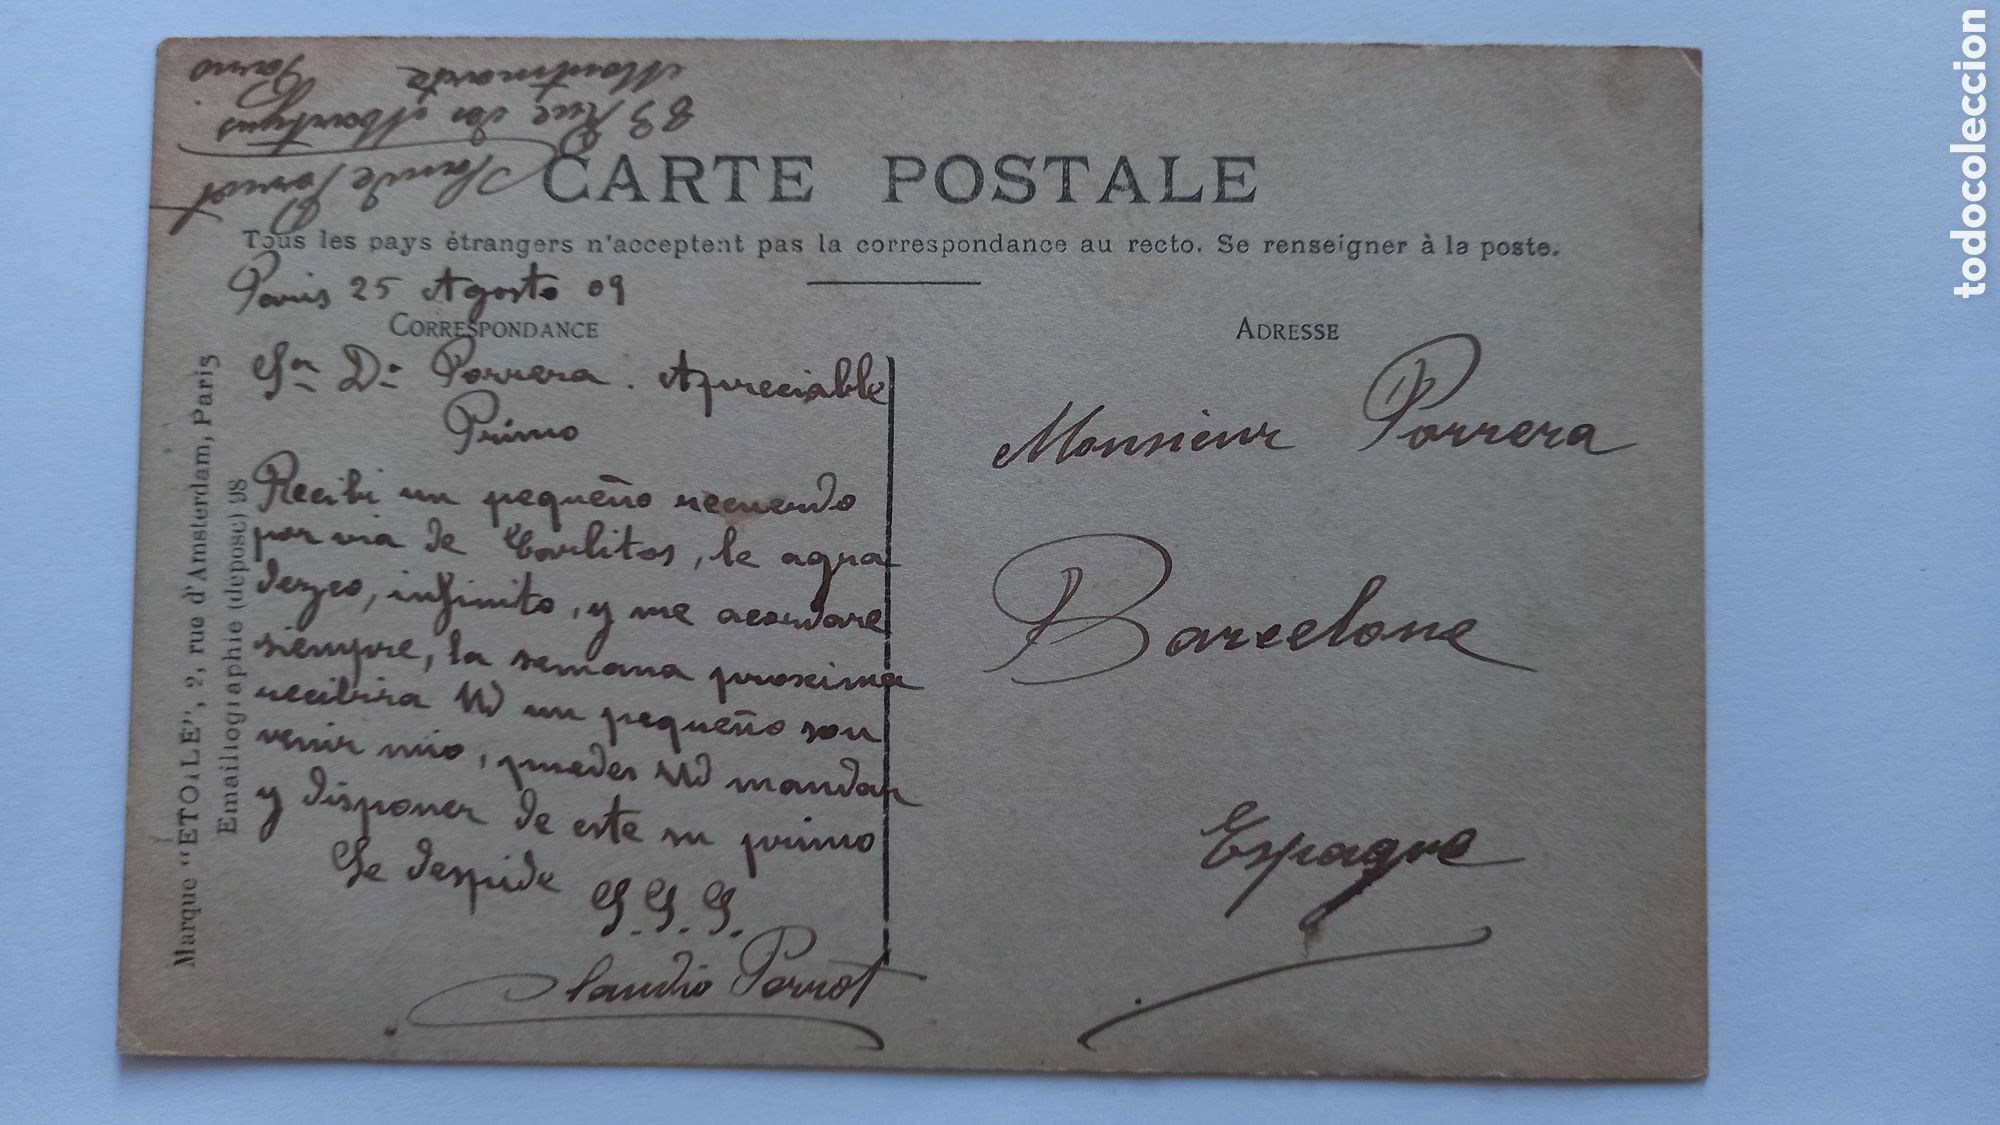 Claude Perrot
83 Rue des Martyrs
Montmartre
Paris
CARTE POSTALE
Tous les pays étrangers n'acceptent pas la correspondance au recto. Se renseigner à la poste.
Paris 25 Agosto 09
CORRESPONDANCE
Sr. Dn. Porrera. Apreciable
Primo
Recibi un pequeño recuerdo
por via de Carlitos, le agra
dezco, infinito, y me acordare
siempre, la semana proxima
recibira Vd un pequeño sou
venir mio, puedes Vd mandar
y disponer de este su primo
Se despide
S.S.S.
Claudio Perrot
ADRESSE
Monsieur Porrera
Barcelone
Espagne
Marque "ETOILE", 2, rue d'Amsterdam, Paris
Emaillographie (déposé) 98
todocoleccion